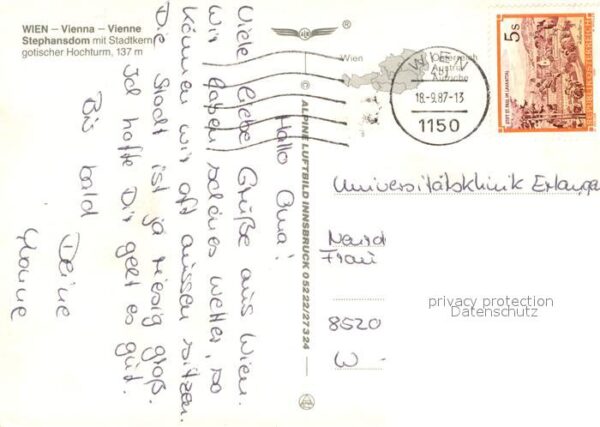 WIEN – Vienna – Vienne
Stephansdom mit Stadtkern
gotischer Hochturm, 137 m
Hallo Oma!
Viele liebe Grüße aus Wien.
Wir haben schönes Wetter, so
können wir oft aussen sitzen.
Die Stadt ist ja riesig groß.
Ich hoffe Dir geht es gut.
Bis bald
Deine
© ALPINE LUFTBILD INNSBRUCK 05222/27324
Wien
Österreich
Austria
Autriche
WIEN
18.-9.87-13
1150
5 S
REPUBLIK ÖSTERREICH
STIFT ST. PAUL IM LAVANTTAL
Universitätsklinik Erlangen
Frau
8520
W -
privacy protection
Datenschutz